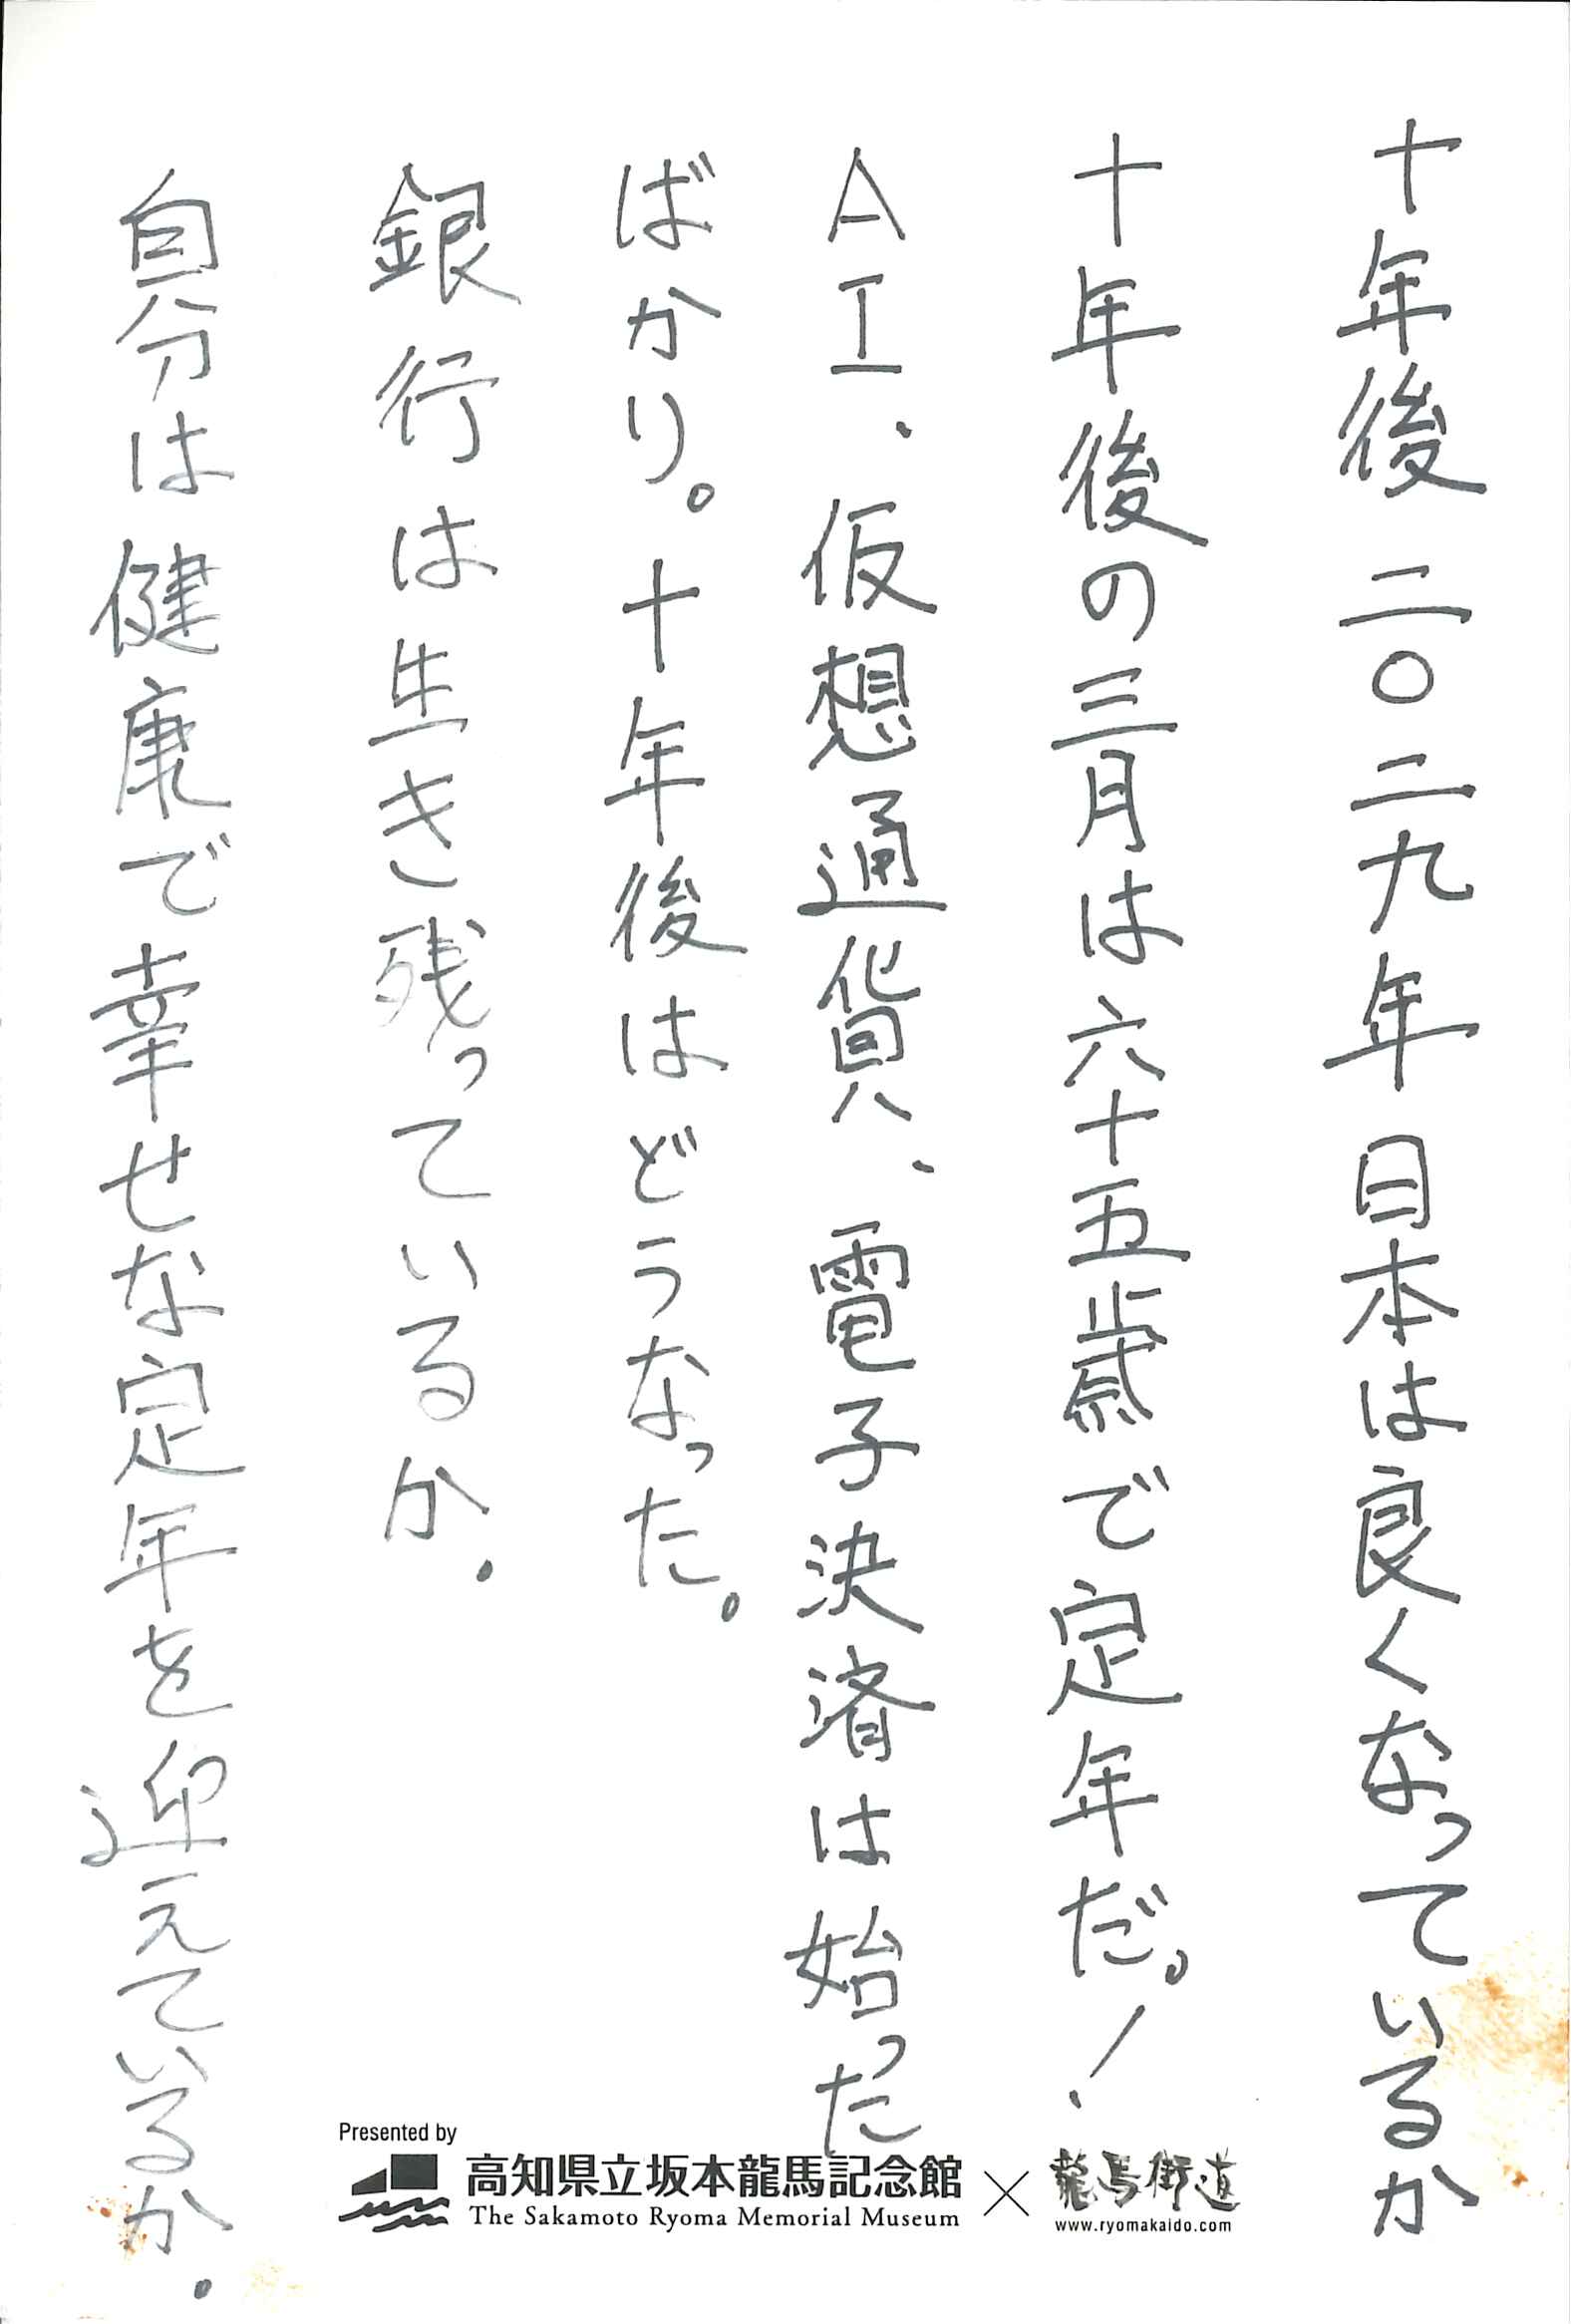 十年後 二〇二九年 日本は良くなっているか
十年後の三月は六十五歳で定年だ。！
AI、仮想通貨、電子決済は始った
ばかり。十年後はどうなった。
銀行は生き残っているか。
自分は健康で幸せな定年を迎えているか。
Presented by
高知県立坂本龍馬記念館 × 龍馬街道
The Sakamoto Ryoma Memorial Museum
www.ryomakaido.com